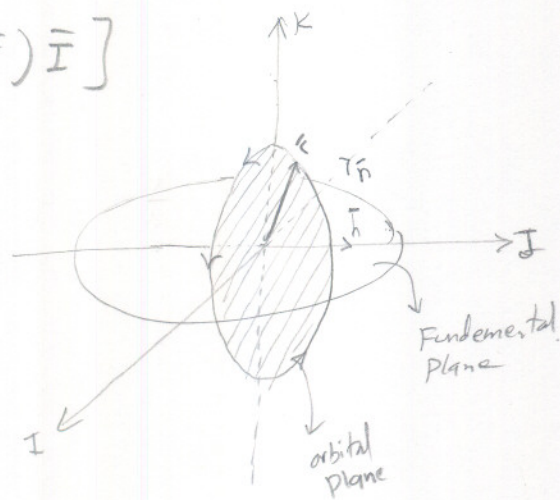 ) Ī ]
K
r
n̄
h̄
J
Fundemental
Plane
I
orbital
Plane